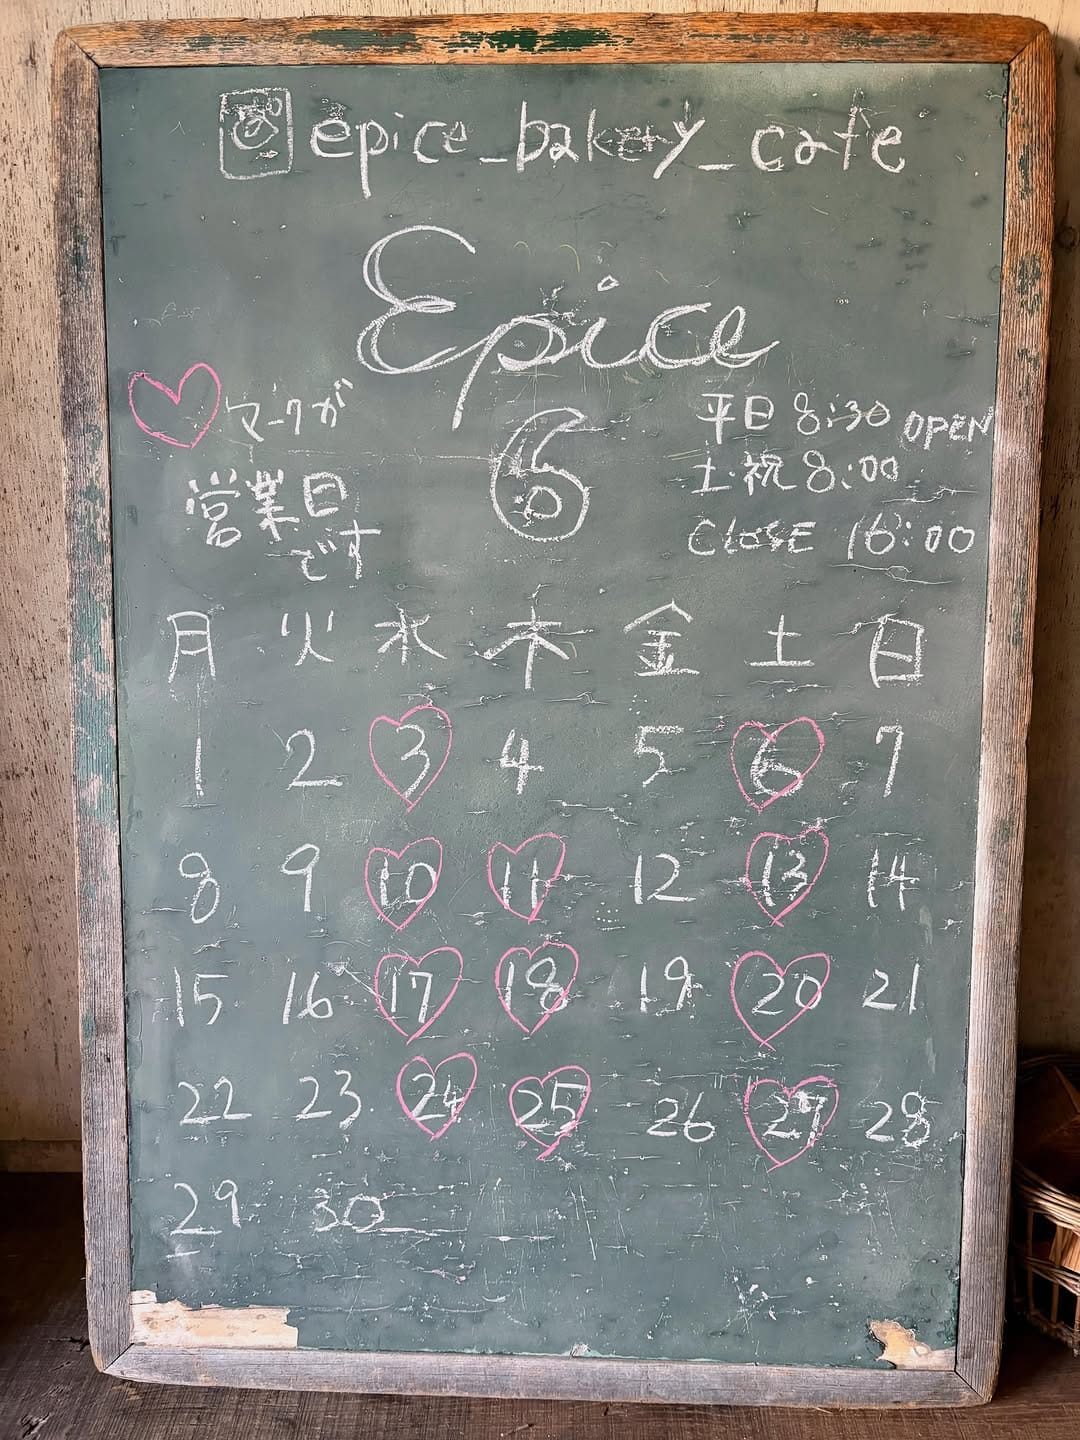 epice_bakery_cafe
Epice
マークが
営業日
です
6
平日 8:30 OPEN
土・祝 8:00
CLOSE 16:00
月 火 水 木 金 土 日
1 2 3 4 5 6 7
8 9 10 11 12 13 14
15 16 17 18 19 20 21
22 23 24 25 26 27 28
29 30